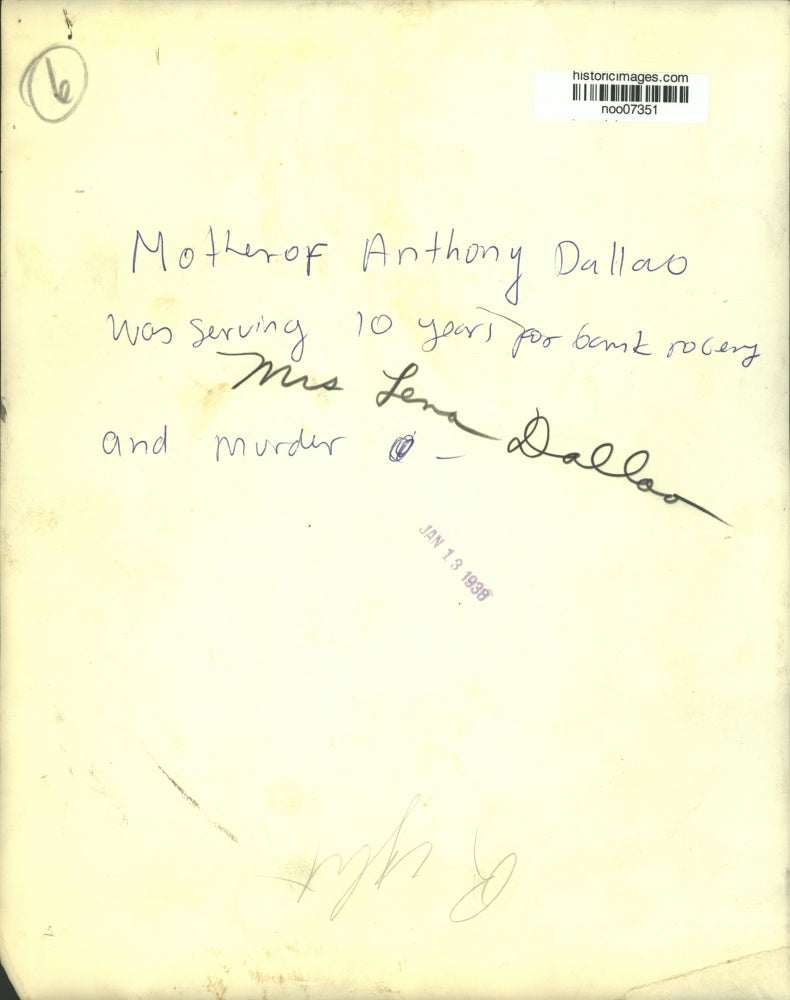 6
historicimages.com
noo07351
Mother of Anthony Dallao
Was serving 10 years for bank robery
Mrs Lena Dallao
and murder -
JAN 13 1938
Right